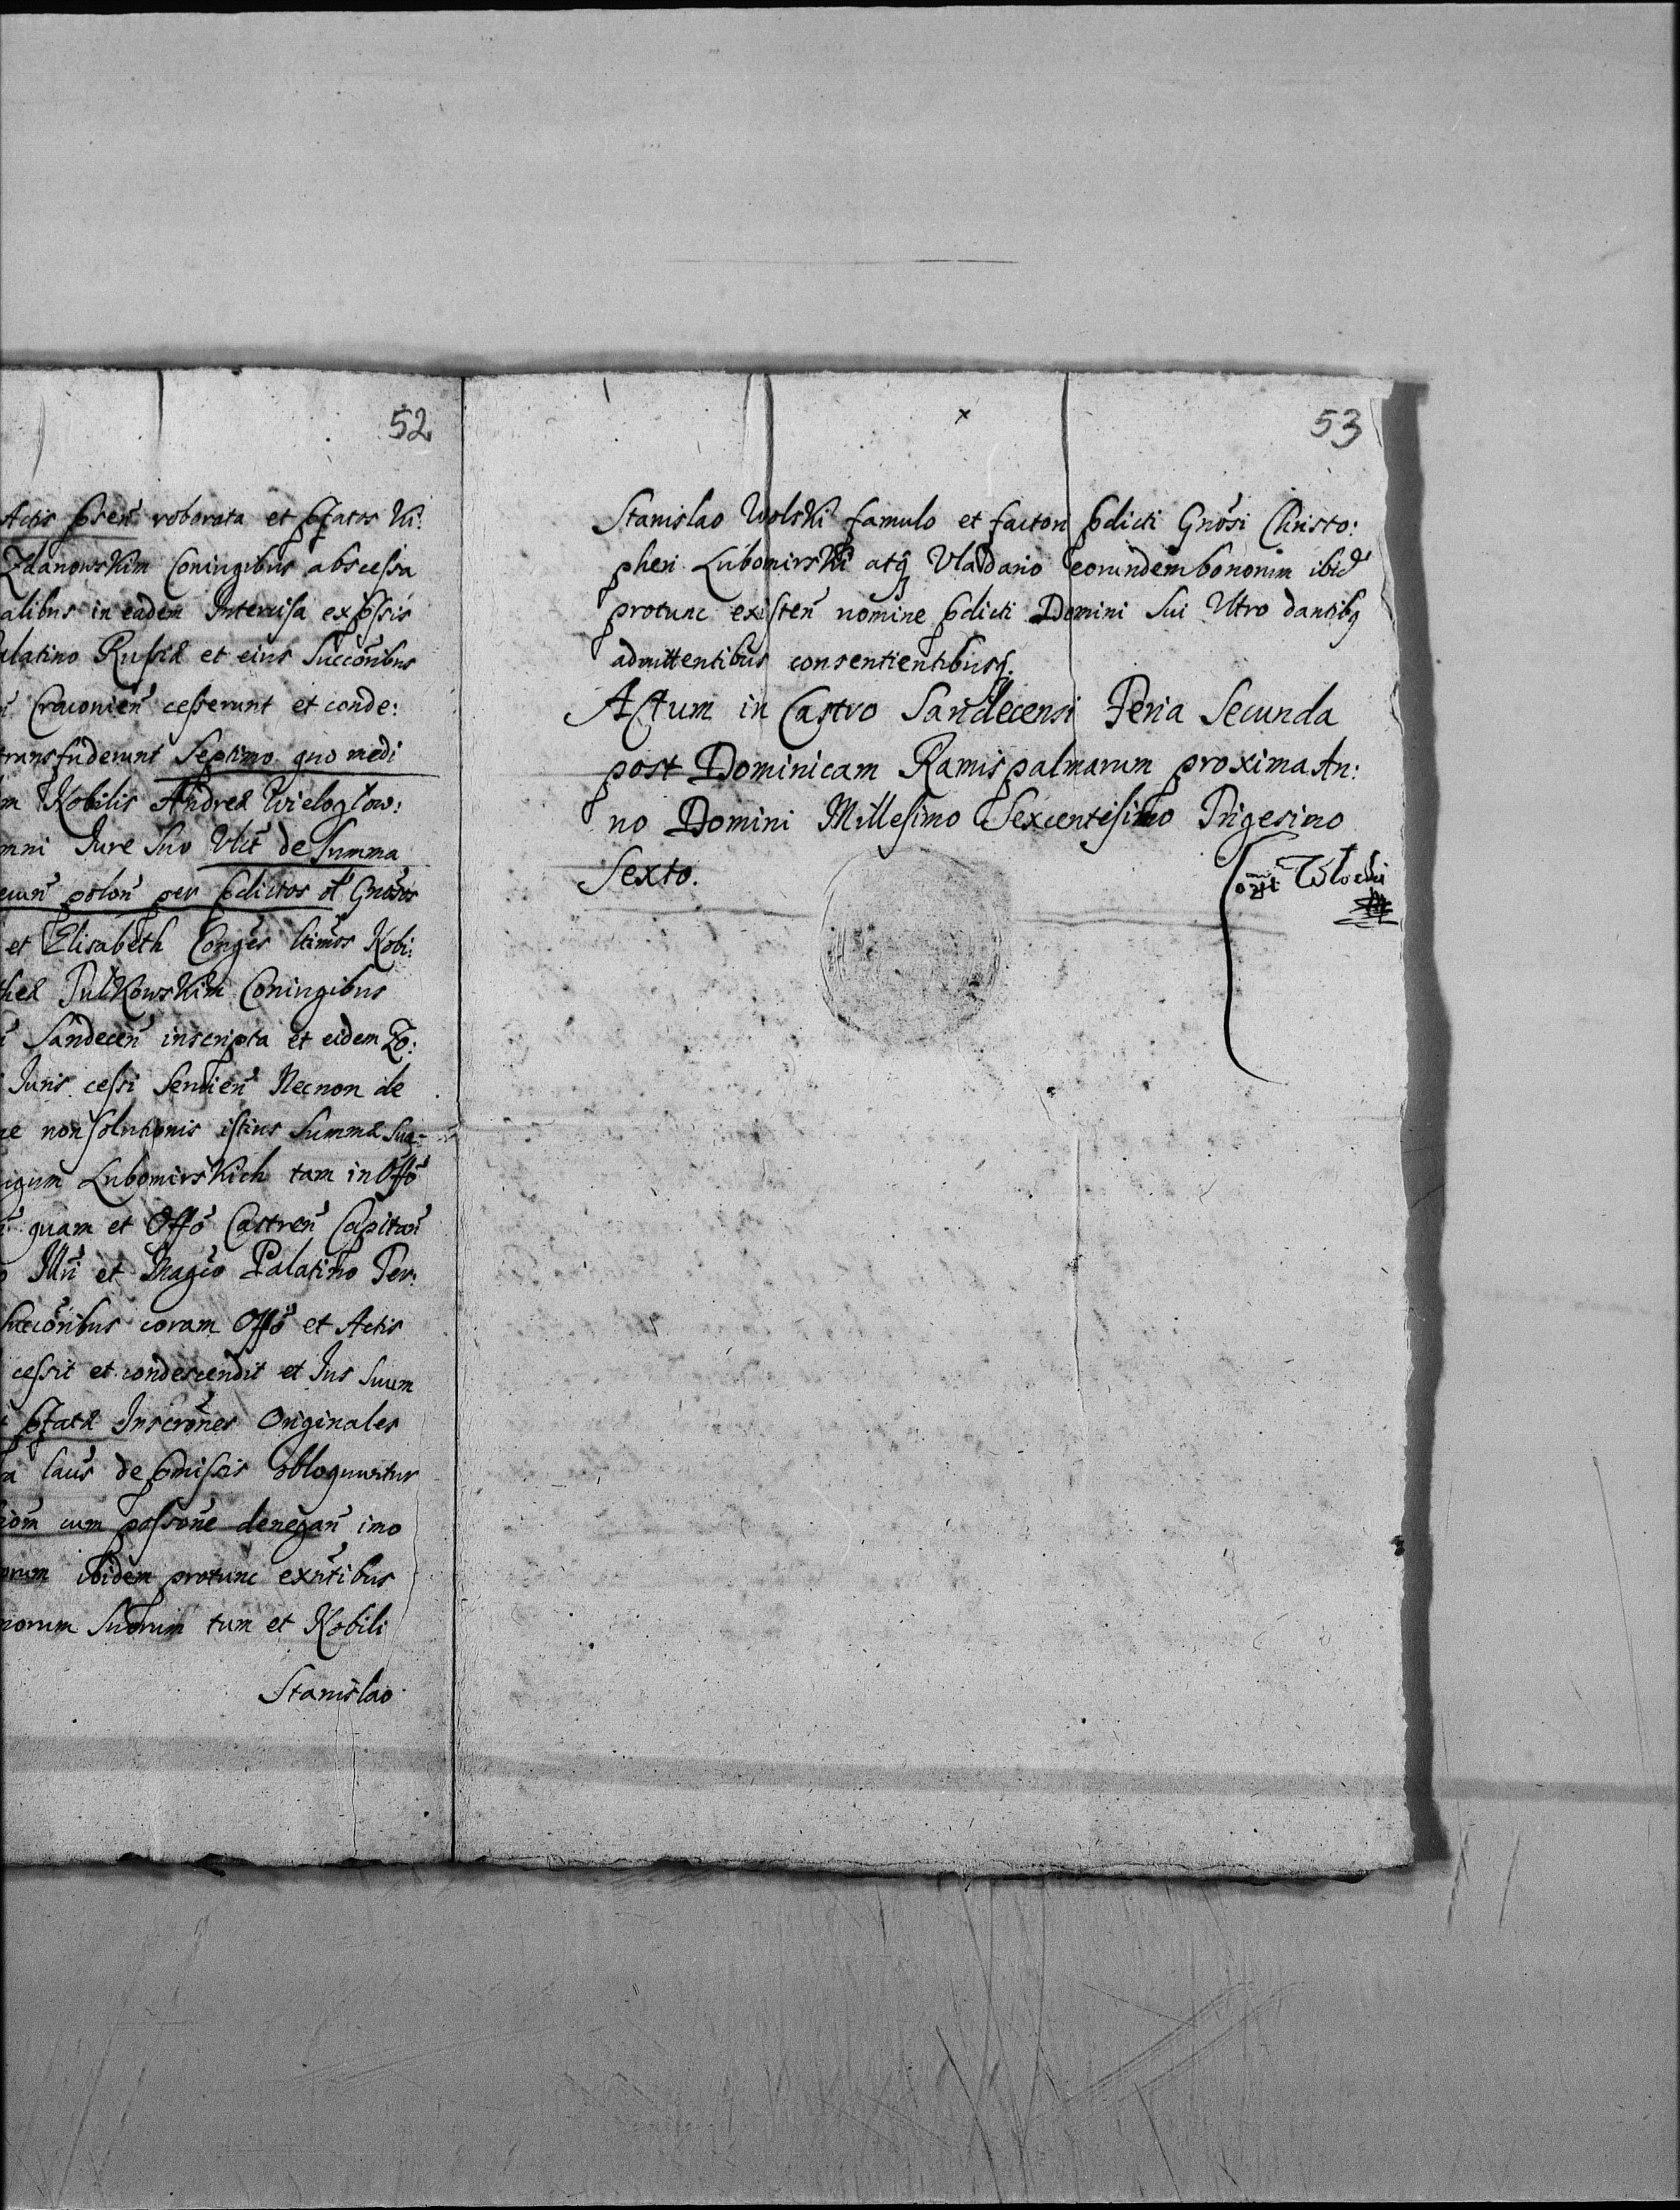 52
Actis pñſen̄ roborata et pfatos
Zdanowskim Coniugibus abscessa
alibus in eadem Intercisa expſsis
alatino Russiæ et eius Succōribus
Cracouien̄ cesserunt et conde:
transfuderunt Septimo quo medi
Nobilis Andreæ Wieloglow:
mni Iure Suo Vlt̄ de Summa
polon̄ per pdictos Gnōsos
et Elisabeth Conges ltimos Nobi:
Putkowskim Coniugibus
Sandecen̄ inscripta et eidem Zo:
Iuris cessi Seruien̄ Necnon de
non solutionis istius Summæ
Lubomirskich tam in Offō
quam et Offō Castren̄ Capitan̄
Illri et Magco Palatino Ter:
Succōribus coram Offō et Actis
cessit et condescendit et Ius Suum
pfatæ Inscrōnes Originales
a de pmissis obloquuntur
cum possone denegan̄ imo
orum ibidem protunc exn̄tibus
norum Suorum tum et Nobili
Stanislao
53
Stanislao Wolski famulo et factori pdicti Gnōsi Christo:
pheri Lubomirski atq Vladario eorundem bonorum ibid
protunc existen̄ nomine pdicti Domini Sui Vltro dantibq
admittentibus consentientibusq.
Actum in Castro Sandecensi Feria Secunda
post Dominicam Ramis palmarum proxima An:
no Domini Millesimo Sexcentesimo Trigesimo
Sexto.